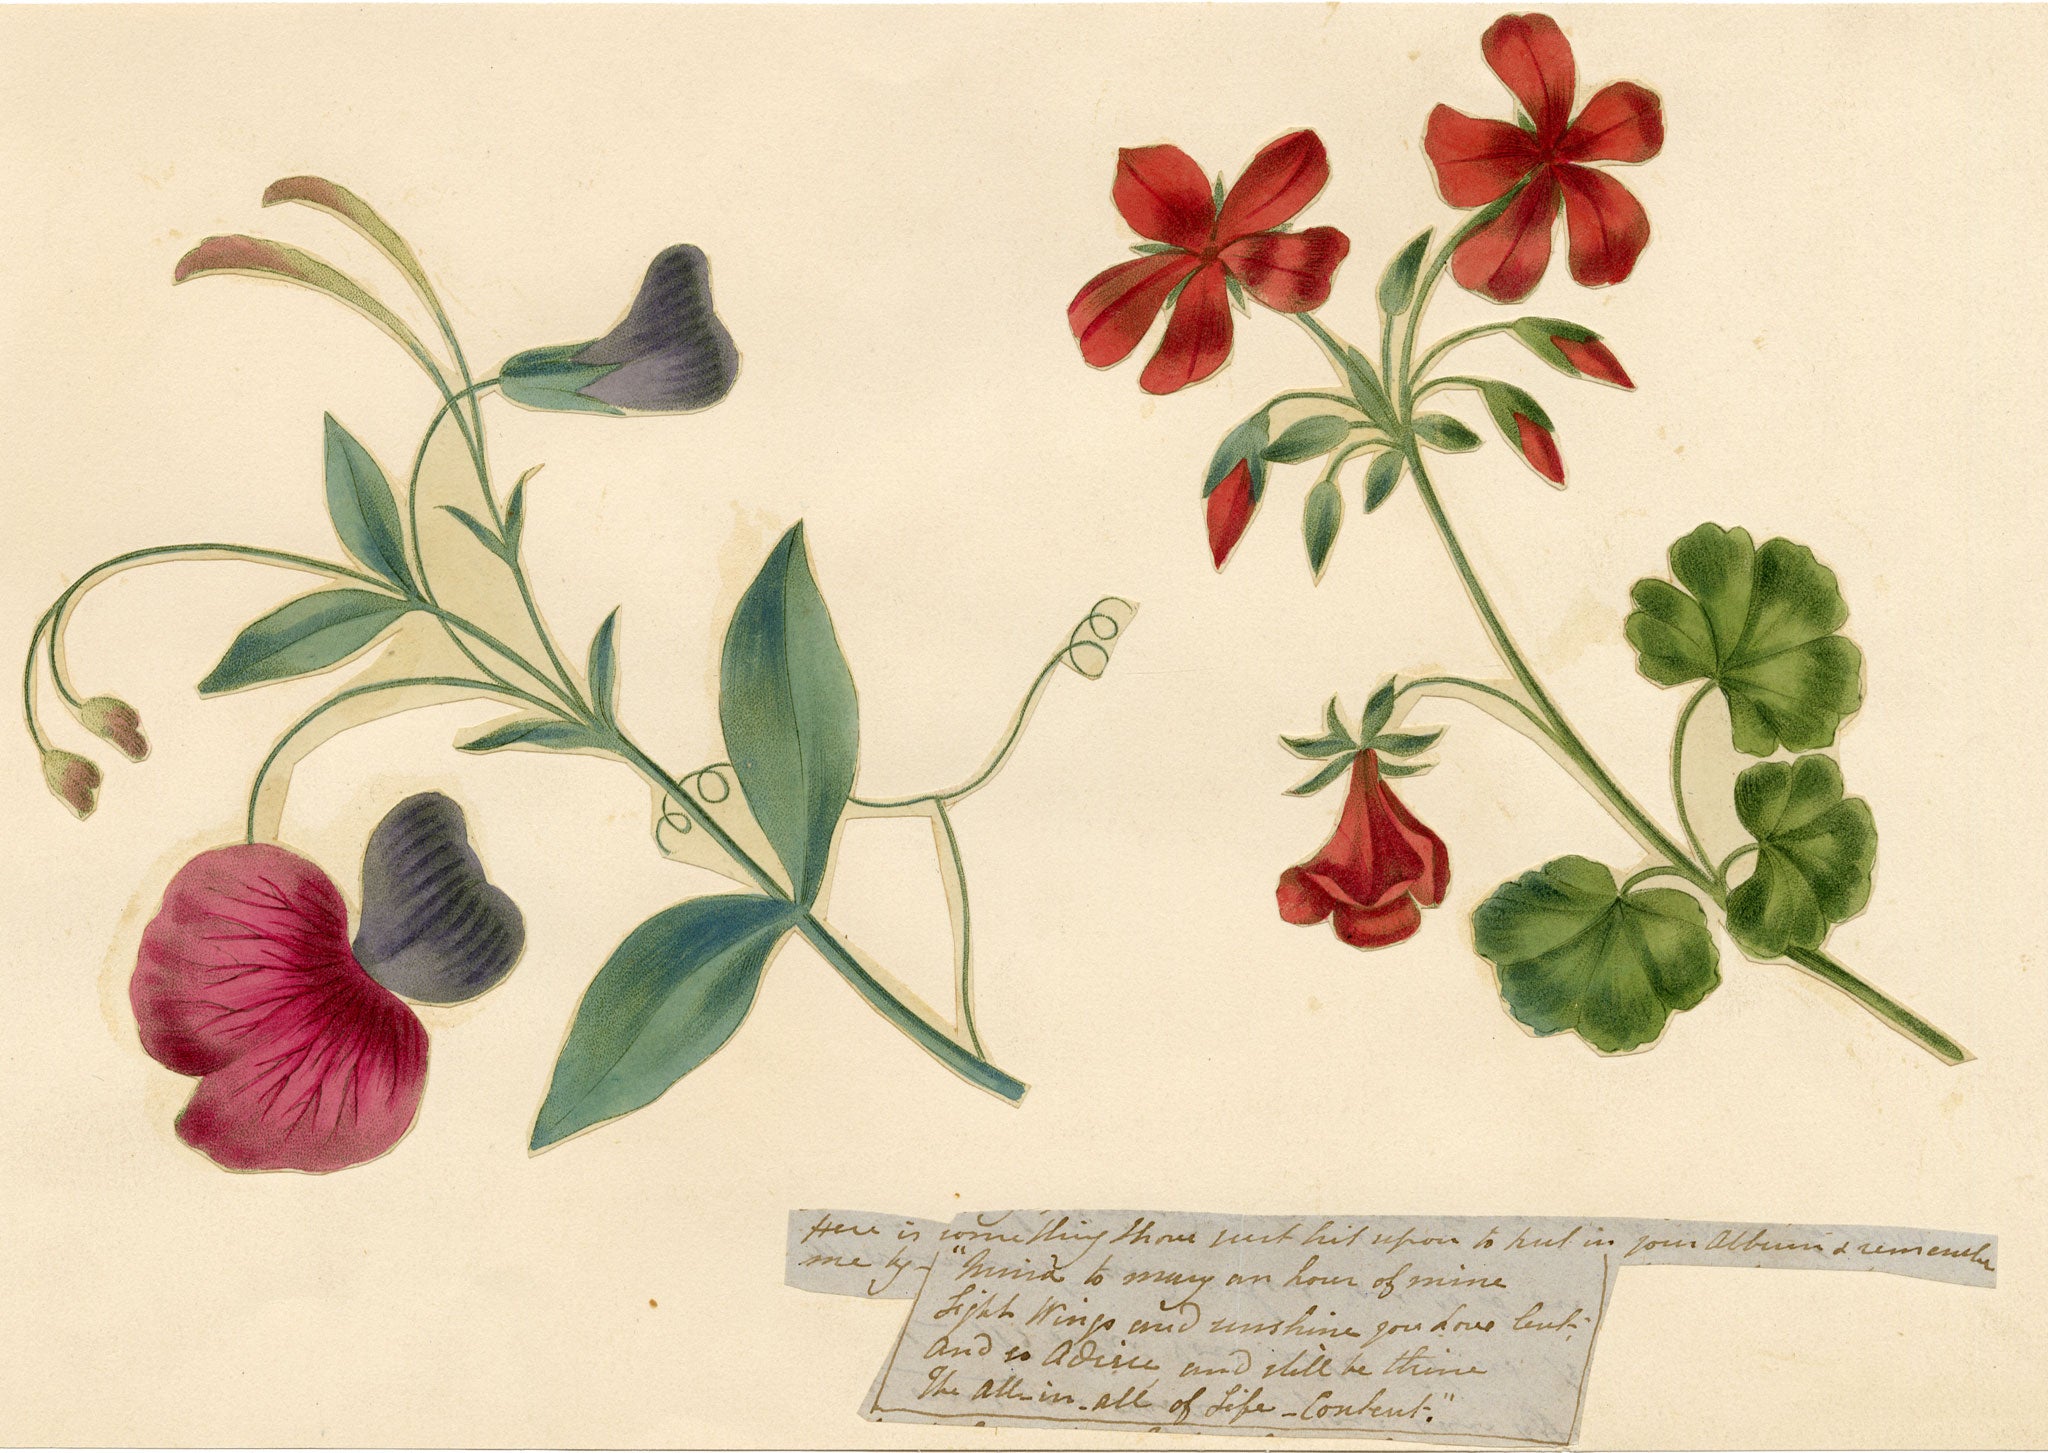 Here is something I have just hit upon to put in your Album & remember
me by - "Friend to many an hour of mine
Light Wings and sunshine you have lent;
And so Adieu, and still be thine
The all-in-all of Life - Content."